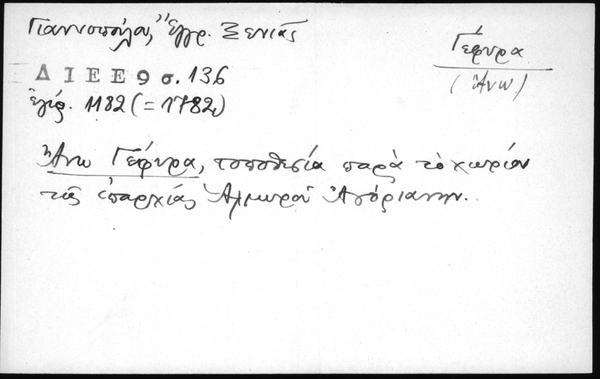 Γιαννοπούλου, Ἔγγρ. Ξενιᾶς
Γέφυρα
(Ἄνω)
ΔΙΕΕ 9 σ. 136
ἐγγρ. 1182 (= 1782)
Ἄνω Γέφυρα, τοποθεσία παρὰ τὸ χωρίον
τῆς ἐπαρχίας Ἁλμυροῦ Ἀγόριανην.